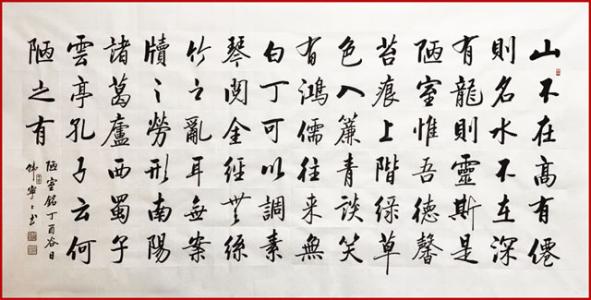 山不在高有僊
則名水不在深
有龍則靈斯是
陋室惟吾德馨
苔痕上階緑草
色入簾青談笑
有鴻儒往來無
白丁可以調素
琴閲金經無絲
竹之亂耳無案
牘之勞形南陽
諸葛廬西蜀子
雲亭孔子云何
陋之有
陋室銘丁酉谷日